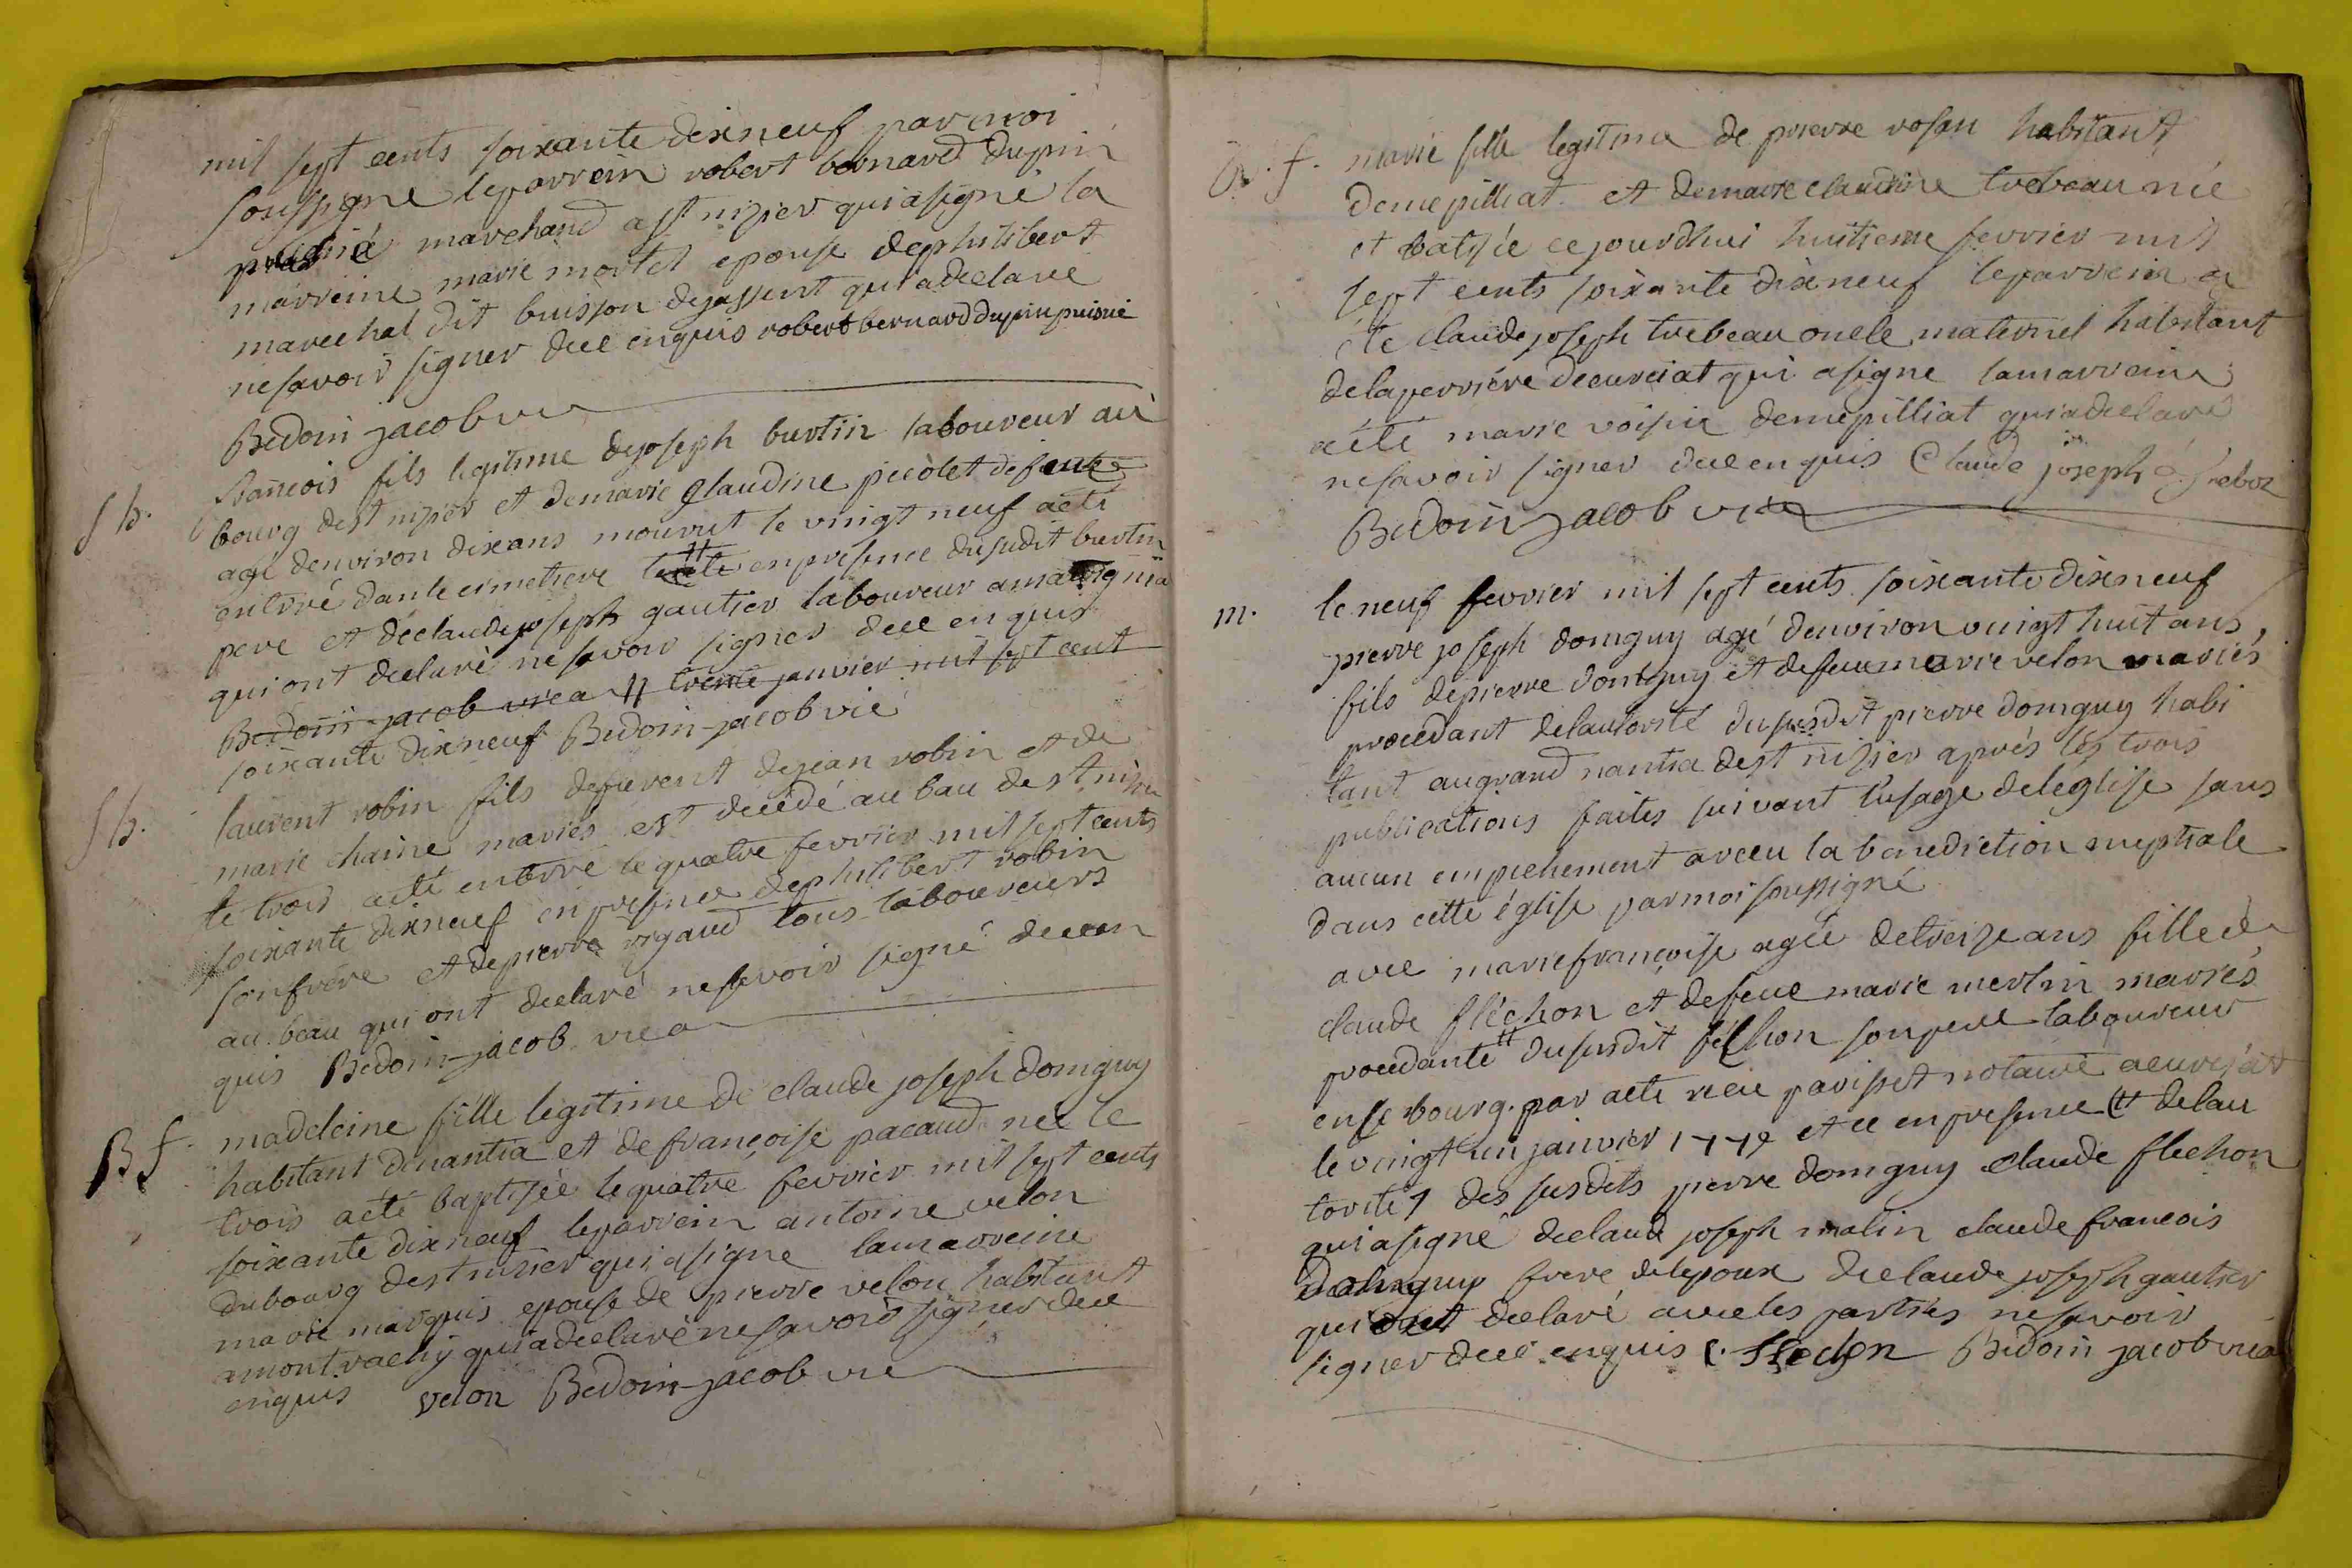 mil sept cents soixante dix neuf par moi
soussigné le parrein robert bernard dupin
puisné marchand a st nizier qui a signé la
marreine marie mortel epouse de philibert
marechal dit buisson de jassent qui a declaré
ne savoir signer de ce enquis robert bernard dupin puisné
Bedoin jacob vic
S h. francois fils legitime de joseph burtin laboureur au
bourg de st nizier et de marie glaudine picolet defunte
agé denviron dix ans mourut le vingt neuf a eté
enterré dan le cimetiere le # en presence du sudit burtin
pere et de claude joseph gautier laboureur a
qui ont declaré ne savoir signer de ce enquis
Bedoin jacob vica # trente janvier mil sept cent
soixante dix neuf Bedoin jacob vié
S h. laurent robin fils de furent de jean robin et de
marie chaine mariés est decedé au bau de st nizier
le trois a eté enterré le quatre fevrier mil sept cents
soixante dix neuf en presence de philibert robin
son frere et de pierre rigaud tous laboureurs
au beau qui ont declaré ne savoir signé de ce en
quis Bedoin jacob vica
B f. madeleine fille legitime de claude joseph domguy
habitant de nantia et de françoise pacaud née le
trois a eté baptisée le quatre fevrier mil sept cents
soixante dix neuf le parrein antoine velon
du bourg de st nizier qui a signe la marreine
marie marquis epouse de pierre velon habitant
a montrachy qui a declaré ne savoir signer de ce
enquis velon Bedoin jacob vic
B. f. marie fille legitime de pierre vosan habitant
de mepilliat et de marie claudine trebeau née
et batisée ce jourdhui huitieme fevrier mil
sept cents soixante dix neuf le parrein a
été claude joseph trebeau oncle maternel habitant
de la perriére de curciat qui a signe la marreine
a été marie voisin de mepilliat qui a declaré
ne savoir signer de ce enquis Claude joseph treboz
Bedoin jacob vica
m. le neuf fevrier mil sept cents soixante dix neuf
pierre joseph domguy agé denviron vingt huit ans,
fils de pierre domguy et de feue marie velon mariés,
procedant de lautorité du susdit pierre domguy habi
tant au grand nantia de st nizier aprés les trois
publications faites suivant l'usage de leglise sans
aucun empechement a receu la benediction nuptiale
dans cette église par moi soussigné
avec marie françoise agée de treize ans fille de
claude fléchon et de feue marie merlin mariés
procedante # du susdit fléchon son pere laboureur
en se bourg. par acte receu parisset notaire a curciat
le vingt un janvier 1779 et ce en presence (# de lau
torité) des susdits pierre domguy claude flechon
qui a signé de claude joseph malin claude francois
domguy frere de lepoux de claude joseph gautier
qui ont declaré avec les parties ne savoir
signer de ce enquis C. flechon Bedoin jacob vica